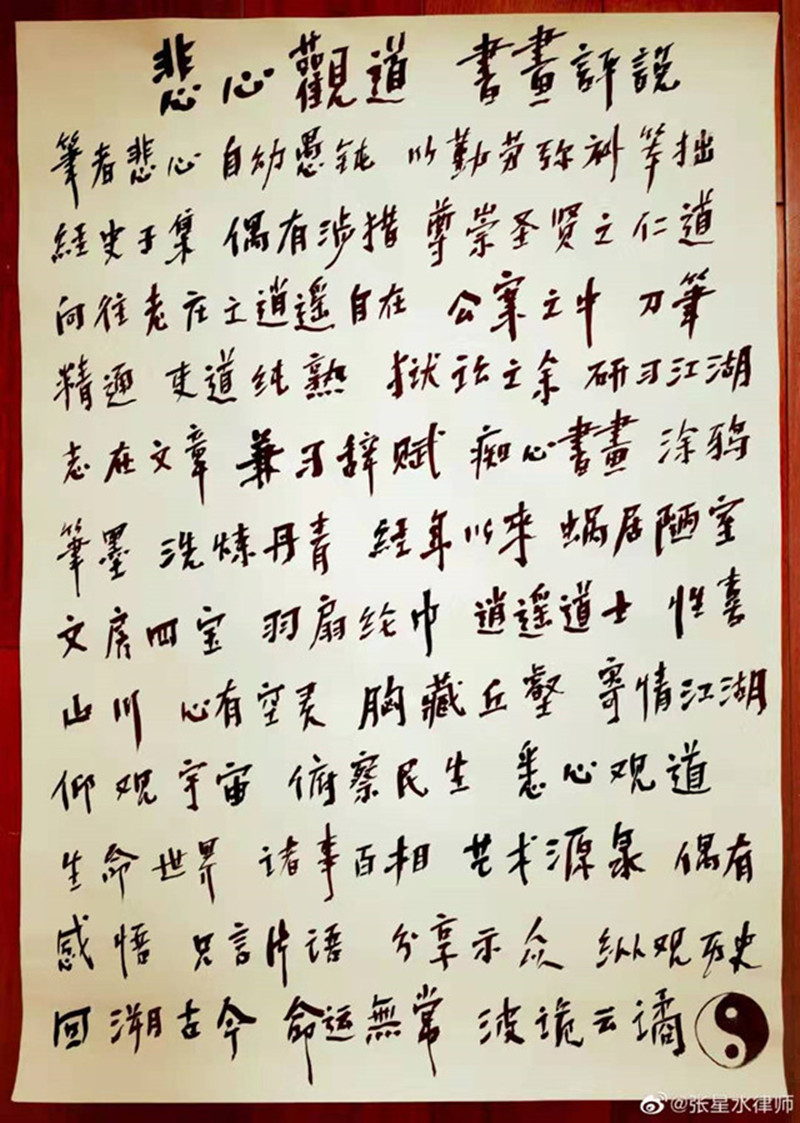 悲心觀道 書畫評說
筆者悲心 自幼愚钝 以勤劳弥补笨拙
経史子集 偶有涉猎 尊崇圣贤之仁道
向往老庄之逍遥自在 公案之中 刀筆
精通 吏道纯熟 狱讼之余 研习江湖
志在文章 兼习辞赋 痴心書畫 涂鸦
筆墨 洗炼丹青 経年以来 蜗居陋室
文房四宝 羽扇纶巾 逍遥道士 性喜
山川 心有空灵 胸藏丘壑 寄情江湖
仰观宇宙 俯察民生 悉心观道
生命世界 诸事百相 艺术源泉 偶有
感悟 只言片语 分享示众 纵观历史
回溯古今 命运無常 波诡云谲
@张星水律师